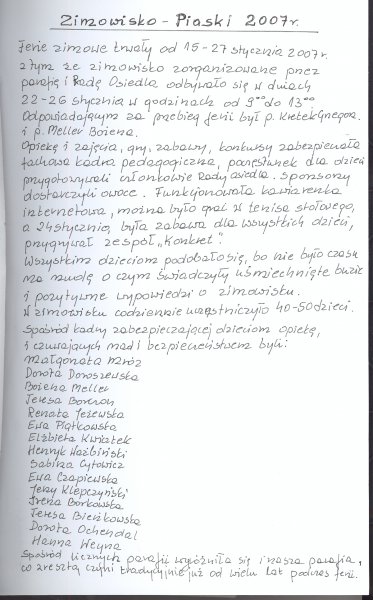 Zimowisko - Piaski 2007r.
Ferie zimowe trwały od 15-27 stycznia 2007r.
z tym że zimowisko zorganizowane przez
parafię i Radę Osiedla odbywało się w dniach
22-26 stycznia w godzinach od 9⁰⁰ do 13⁰⁰.
Odpowiadającym za przebieg ferii był p. Grzegorz
i p. Meller Bożena.
Opiekę i zajęcia, gry, zabawy, konkursy zabezpieczała
fachowa kadra pedagogiczna, poczęstunek dla dzieci
przygotowywali członkowie Rady osiedla. Sponsorzy
dostarczyli owoce. Funkcjonowała kawiarenka
internetowa, można było grać w tenisa stołowego,
a 24 stycznia, była zabawa dla wszystkich dzieci,
przygrywał zespół „Konkret".
Wszystkim dzieciom podobało się, bo nie było czasu
na nudę o czym świadczyły uśmiechnięte buzie
i pozytywne wypowiedzi o zimowisku.
W zimowisku codziennie uczestniczyło 40-50 dzieci.
Spośród kadry zabezpieczającej dzieciom opiekę,
i czuwających nad i bezpieczeństwem byli:
Małgorzata Mróz
Dorota Doroszewska
Bożena Meller
Teresa
Renata Jeżewska
Ewa Piątkowska
Elżbieta Kwiatek
Henryk Waźbiński
Sabina Cytowicz
Ewa Czapiewska
Jerzy Klepczyński
Irena Borkowska
Teresa Bieżkowska
Dorota Ochendal
Hanna Weyna
Spośród licznych parafii wyróżniła się i nasza parafia,
co zresztą czyni tradycyjnie już od wielu lat podczas ferii.